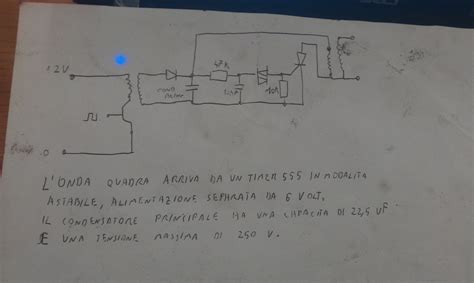 12V
47K
COND.
10K
0
L'ONDA QUADRA ARRIVA DA UN TIMER 555 IN MODALITA
ASTABILE, ALIMENTAZIONE SEPARATA DA 6 VOLT.
IL CONDENSATORE PRINCIPALE HA UNA CAPACITA DI 22,5 UF
E UNA TENSIONE MASSIMA DI 250 V.